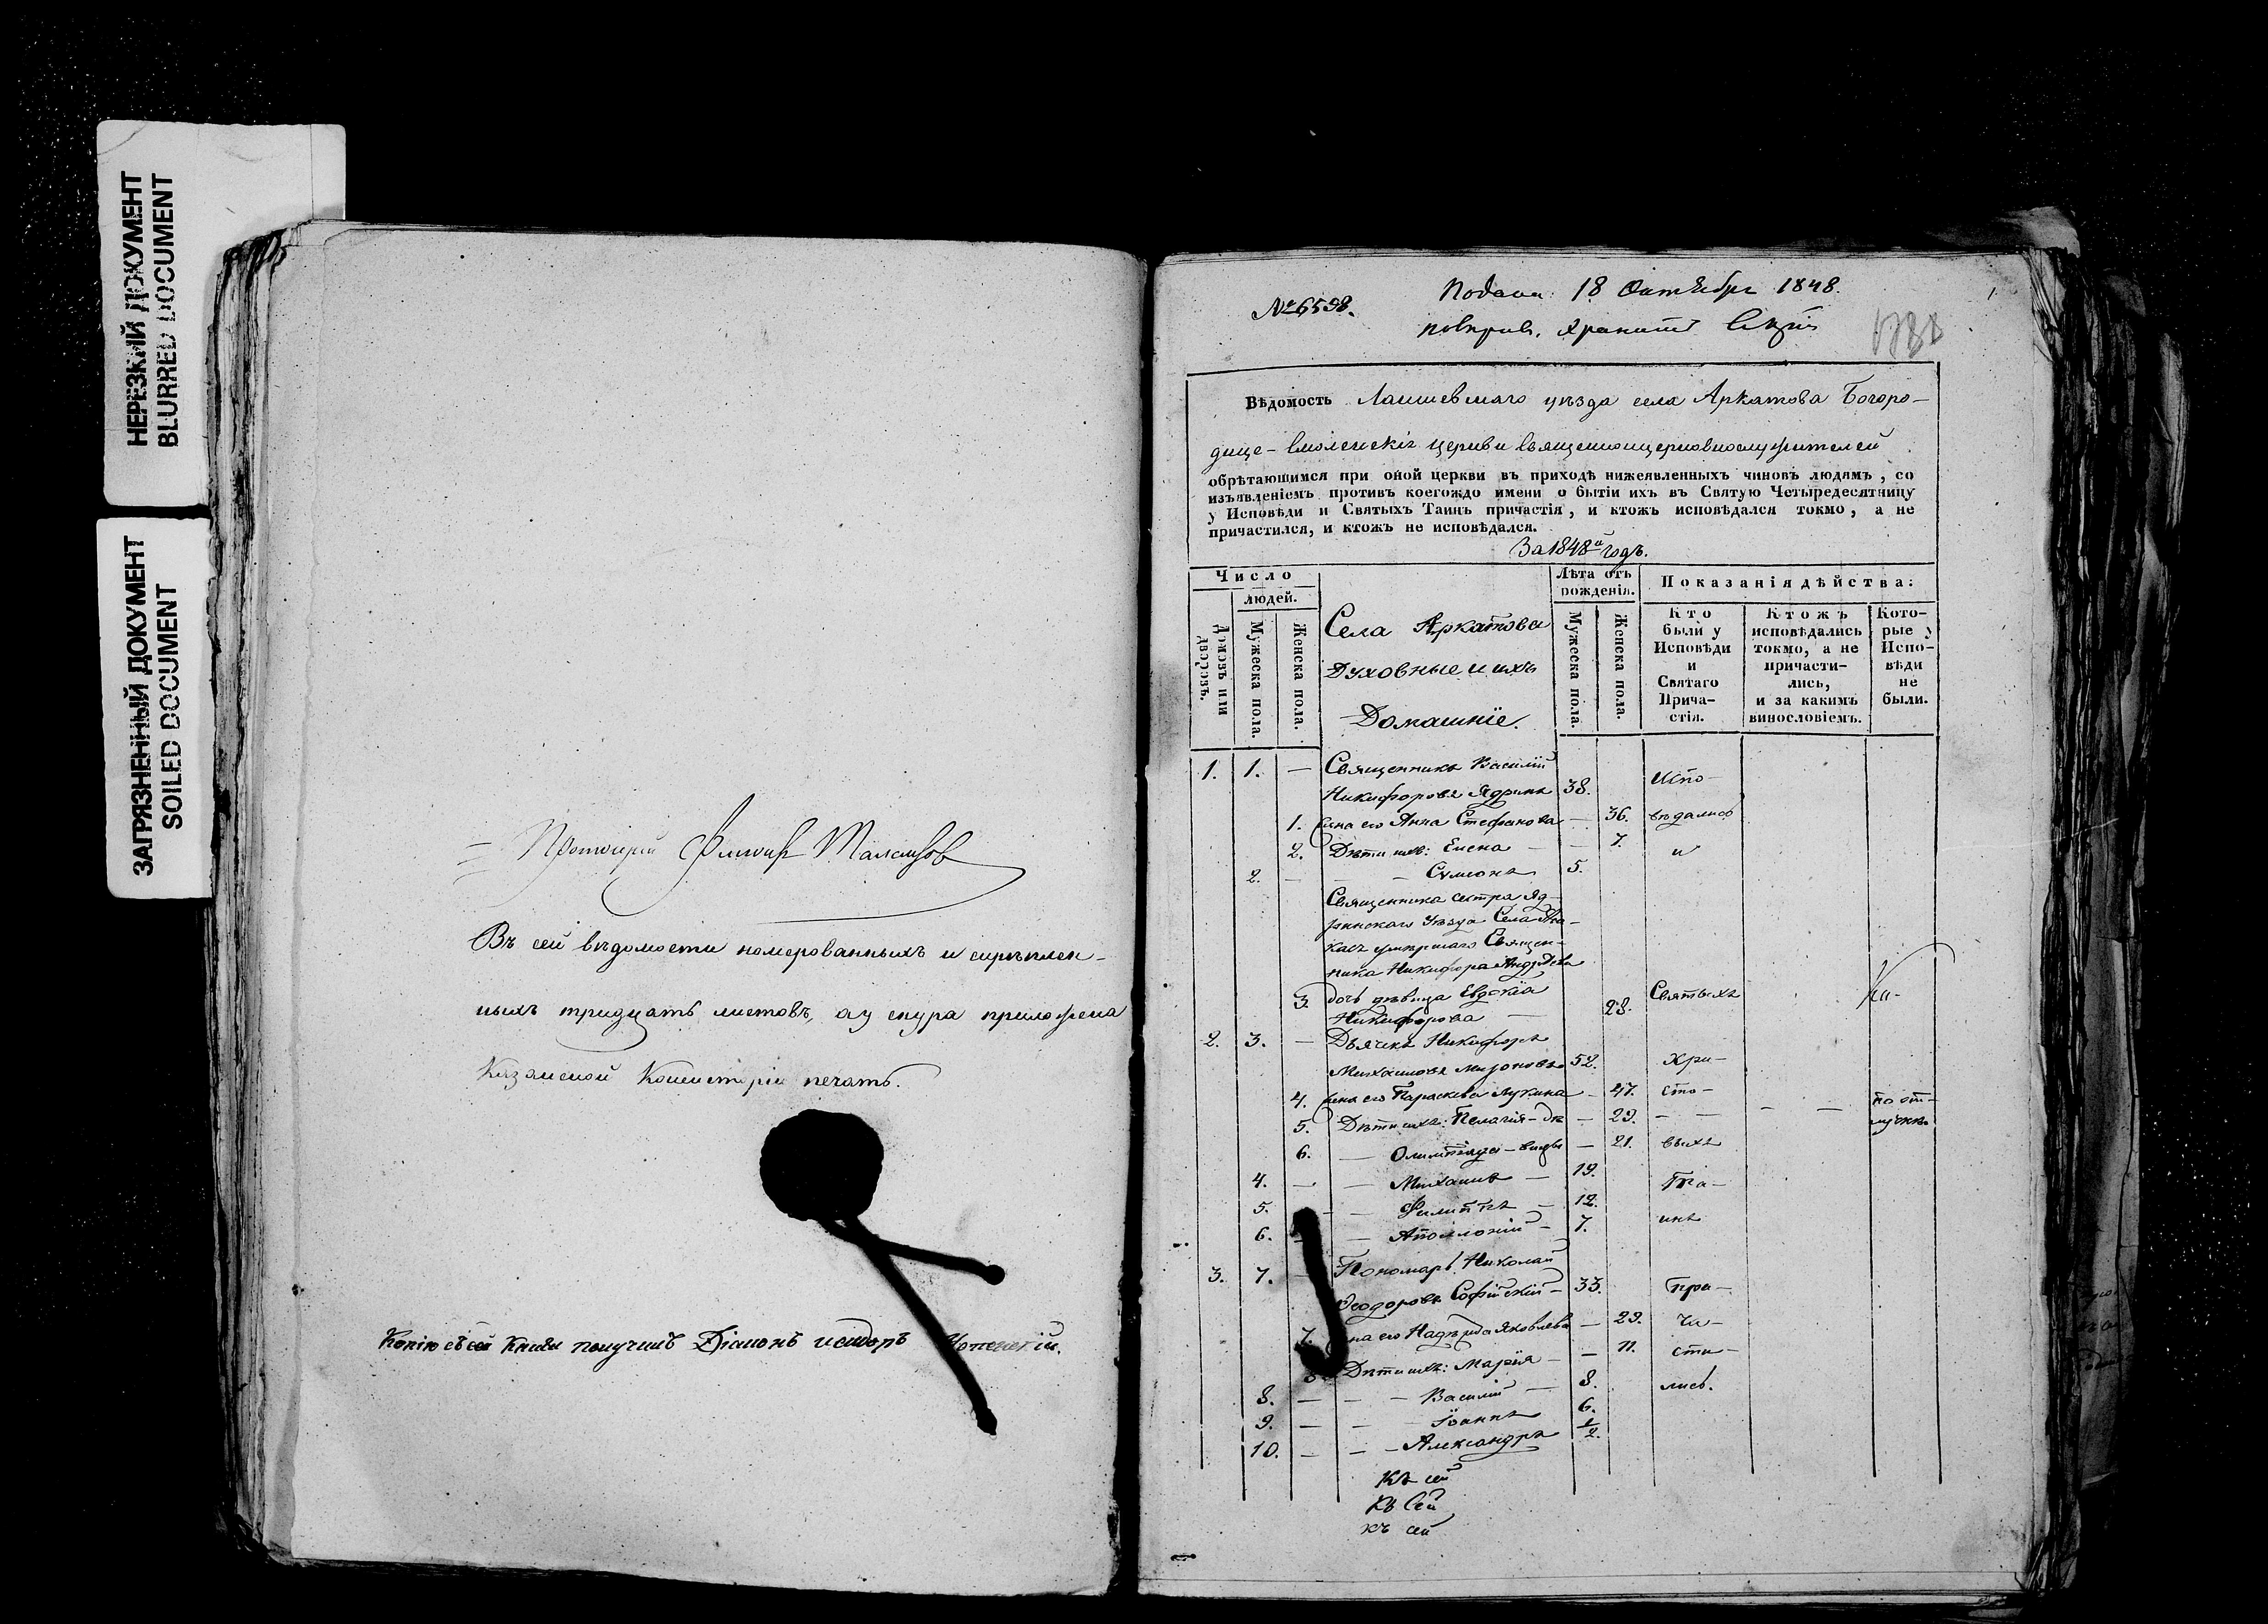 НЕРЕЗКИЙ ДОКУМЕНТ
BLURRED DOCUMENT
ЗАГРЯЗНЕННЫЙ ДОКУМЕНТ
SOILED DOCUMENT
Протоіерей
Въ сей вѣдомости номерованныхъ и скрѣплен-
ныхъ тридцать листовъ, а у снура приложена
Казанской Консисторіи печать.
Копію съ сей Книги получилъ Діаконъ
№ 6598.
18 Октября 1848.
Вѣдомость Лаишевскаго уѣзда села Аркатова Богоро-
дице-Смоленскія церкви священноцерковнослужителей
обрѣтающимся при оной церкви въ приходѣ нижеявленныхъ чиновъ людямъ, со
изъявленіемъ противъ коегождо имени о бытіи ихъ въ Святую Четыредесятницу
у Исповѣди и Святыхъ Таинъ причастія, и ктожъ исповѣдался токмо, а не
причастился, и ктожъ не исповѣдался.
За 1848й годъ.
Число
людей.
Домовъ или дворовъ.
Мужеска пола.
Женска пола.
Села Аркатова
Духовные и ихъ
Домашніе.
Лѣта отъ рожденія.
Мужеска пола.
Женска пола.
Показанія дѣйства:
Кто были у Исповѣди и Святаго Прича-стія.
Ктожъ исповѣдались токмо, а не причасти-лись, и за какимъ винословіемъ.
Кото-рые у Испо-вѣди не были.
1. 1. — Священникъ Василій
Никифоровъ Ядринъ 38. Испо-
1. Жена его Анна Стефанова — 36. вѣдались
2. Дѣти ихъ: Елена — — 7. и
2. — — Сѵмеонъ 5.
Священника сестра Яд-
ринскаго уѣзда Села
умершаго Священ-
ника Никифора Андреева
3. дочь дѣвица Евдокія Святыхъ
Никифорова — 28.
2. 3. — Дьячекъ Никифоръ
Михаиловъ Мироновъ 52. Хри-
4. Жена его Параскева Лукина — 47. сто-
5. Дѣти ихъ: Пелагія — 23. — — — — по от-
лучкѣ
6. — Олимпіада — — 21. выхъ
4. — — Михаилъ — 19. Та-
5. — — Филиппъ — 12.
6. — — Аполлоній — 7. инъ
3. 7. Пономарь Николай
Ѳеодоровъ Софійскій — 33. При-
7. Жена его Надежда Яковлева — 29. ча-
8. Дѣти ихъ: Марія — — 11. сти-
8. — — Василій — 8. лись.
9. — — Іоаннъ 6.
10. — — Александръ 1/2.
Къ сей
Къ Сей
къ сей